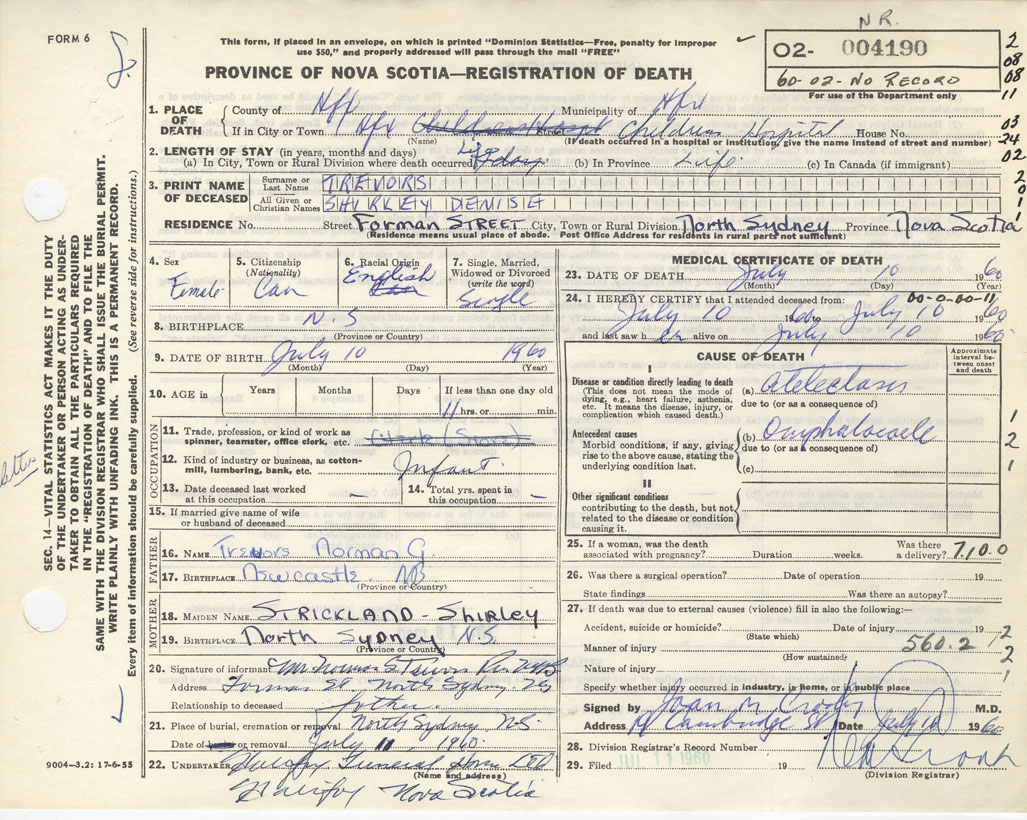 N.R.
FORM 6
This form, if placed in an envelope, on which is printed "Dominion Statistics—Free, penalty for improper
use $50," and properly addressed will pass through the mail "FREE"
02- 004190
60-02-No RECORD
For use of the Department only
PROVINCE OF NOVA SCOTIA—REGISTRATION OF DEATH
2
08
08
11
03
24
02
2
0
1
1
1. PLACE OF DEATH { County of Hfx Municipality of Hfx
If in City or Town Hfx Childrens Hospital House No.
(Name) Street (If death occurred in a hospital or institution, give the name instead of street and number)
2. LENGTH OF STAY (in years, months and days)
(a) In City, Town or Rural Division where death occurred Life (b) In Province Life (c) In Canada (if immigrant)
3. PRINT NAME OF DECEASED { Surname or Last Name TREVORS
All Given or Christian Names SHIRLEY DENISE
RESIDENCE No. Street Forman STREET City, Town or Rural Division North Sydney Province Nova Scotia
(Residence means usual place of abode. Post Office Address for residents in rural parts not sufficient)
4. Sex Female
5. Citizenship (Nationality) Can
6. Racial Origin English
7. Single, Married, Widowed or Divorced (write the word) Single
8. BIRTHPLACE N.S
(Province or Country)
9. DATE OF BIRTH July 10 1960
(Month) (Day) (Year)
10. AGE in Years Months Days If less than one day old
11 hrs. or min.
OCCUPATION
11. Trade, profession, or kind of work as spinner, teamster, office clerk, etc.
12. Kind of industry or business, as cotton-mill, lumbering, bank, etc. Infant
13. Date deceased last worked at this occupation –
14. Total yrs. spent in this occupation –
15. If married give name of wife or husband of deceased
FATHER
16. NAME Trevors Norman G.
17. BIRTHPLACE Newcastle NB
(Province or Country)
MOTHER
18. MAIDEN NAME STRICKLAND - Shirley
19. BIRTHPLACE North Sydney N.S.
(Province or Country)
20. Signature of informant Mr Norman G. Trevors
Address Forman St North Sydney NS
Relationship to deceased father
21. Place of burial, cremation or removal North Sydney N.S.
Date of burial or removal July 11, 1960
22. UNDERTAKER Halifax Funeral Home Ltd
(Name and address)
Halifax Nova Scotia
9004—3.2: 17-6-55
MEDICAL CERTIFICATE OF DEATH
23. DATE OF DEATH July 10 1960
(Month) (Day) (Year)
24. I HEREBY CERTIFY that I attended deceased from: 00-0-00-11
July 10 1960 to July 10 1960
and last saw h er alive on July 10 1960
CAUSE OF DEATH
Approximate interval between onset and death
I
Disease or condition directly leading to death
(This does not mean the mode of dying, e.g., heart failure, asthenia, etc. It means the disease, injury, or complication which caused death.)
(a) atelectasis
due to (or as a consequence of)
Antecedent causes
Morbid conditions, if any, giving rise to the above cause, stating the underlying condition last.
(b) Omphalocele
due to (or as a consequence of)
(c)
1
2
1
II
Other significant conditions
contributing to the death, but not related to the disease or condition causing it.
25. If a woman, was the death associated with pregnancy? Duration weeks. Was there a delivery? 7,10.0
26. Was there a surgical operation? Date of operation 19
State findings Was there an autopsy?
27. If death was due to external causes (violence) fill in also the following:—
Accident, suicide or homicide? Date of injury 19
(State which)
Manner of injury 560.2
(How sustained)
Nature of injury
2
1
2
1
Specify whether injury occurred in industry, in home, or in public place
Signed by Joan M Crosby M.D.
Address Cambridge St Date July 10 1960
28. Division Registrar's Record Number
29. Filed JUL 11 1960 19
(Division Registrar)
SEC. 14—VITAL STATISTICS ACT MAKES IT THE DUTY
OF THE UNDERTAKER OR PERSON ACTING AS UNDER-
TAKER TO OBTAIN ALL THE PARTICULARS REQUIRED
IN THE "REGISTRATION OF DEATH" AND TO FILE THE
SAME WITH THE DIVISION REGISTRAR WHO SHALL ISSUE THE BURIAL PERMIT.
WRITE PLAINLY WITH UNFADING INK. THIS IS A PERMANENT RECORD.
Every item of information should be carefully supplied. (See reverse side for instructions.)